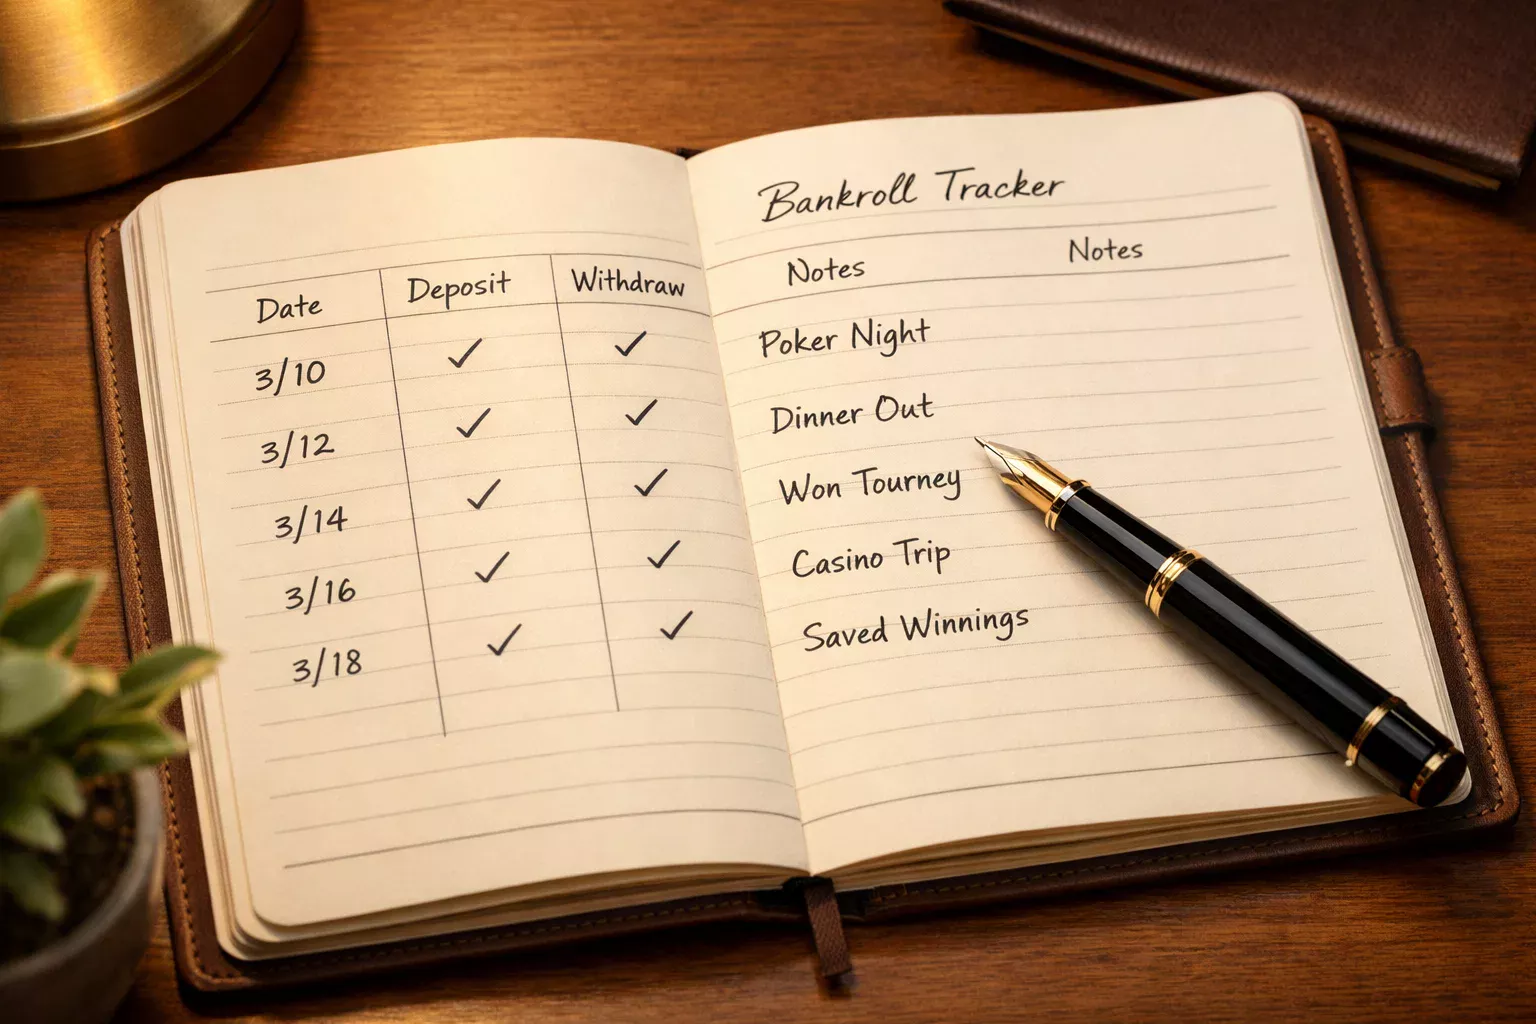 Date Deposit Withdraw
3/10 ✓ ✓
3/12 ✓ ✓
3/14 ✓ ✓
3/16 ✓ ✓
3/18 ✓ ✓
Bankroll Tracker
Notes Notes
Poker Night
Dinner Out
Won Tourney
Casino Trip
Saved Winnings